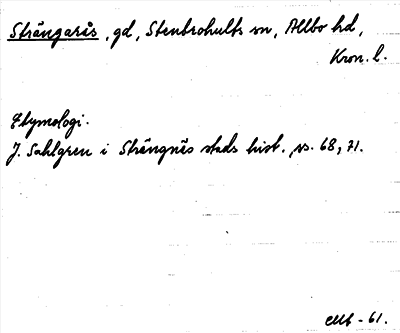 Strängarås, gd, Stenbrohults sn, Allbo hd,
Kron. l.
Etymologi.
J. Sahlgren i Strängnäs stads hist. ss. 68, 71.
-61.